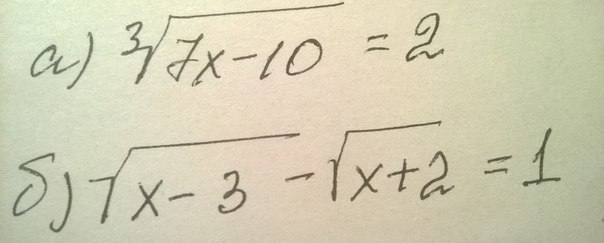 а) ∛(7x-10) = 2
б) √(x-3) - √(x+2) = 1